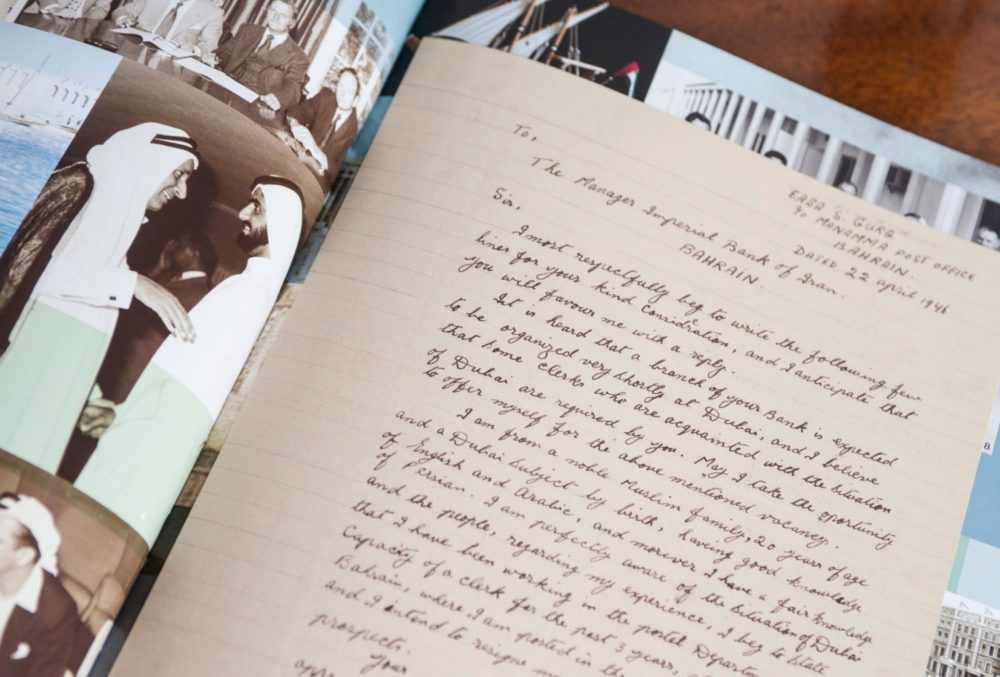 To,
EASA S. GURG
℅ MANAMMA POST OFFICE
BAHRAIN.
DATED 22 april 1946
The Manager Imperial Bank of Iran.
BAHRAIN.
Sir,
I most respectfully beg to write the following few
lines for your kind considration, and I anticipate that
you will favour me with a reply.
It is heard that a branch of your Bank is expected
to be organized very shortly at Dubai, and I believe
that some clerks who are acquainted with the situation
of Dubai are required by you. May I take the oportunity
to offer myself for the above mentioned vacancy.
I am from a noble Muslim family, 20 years of age
and a Dubai Subject by birth, having good knowledge
of English and Arabic, and morever I have a fair knowledge
of Persian. I am perfectly aware of the situation of Dubai
and the people, regarding my experience, I beg to state
that I have been working in the postel
Capacity of a clerk for the past 3 years,
Bahrain, where I am posted in the
and I intend to resigne
prospects.
Your
8